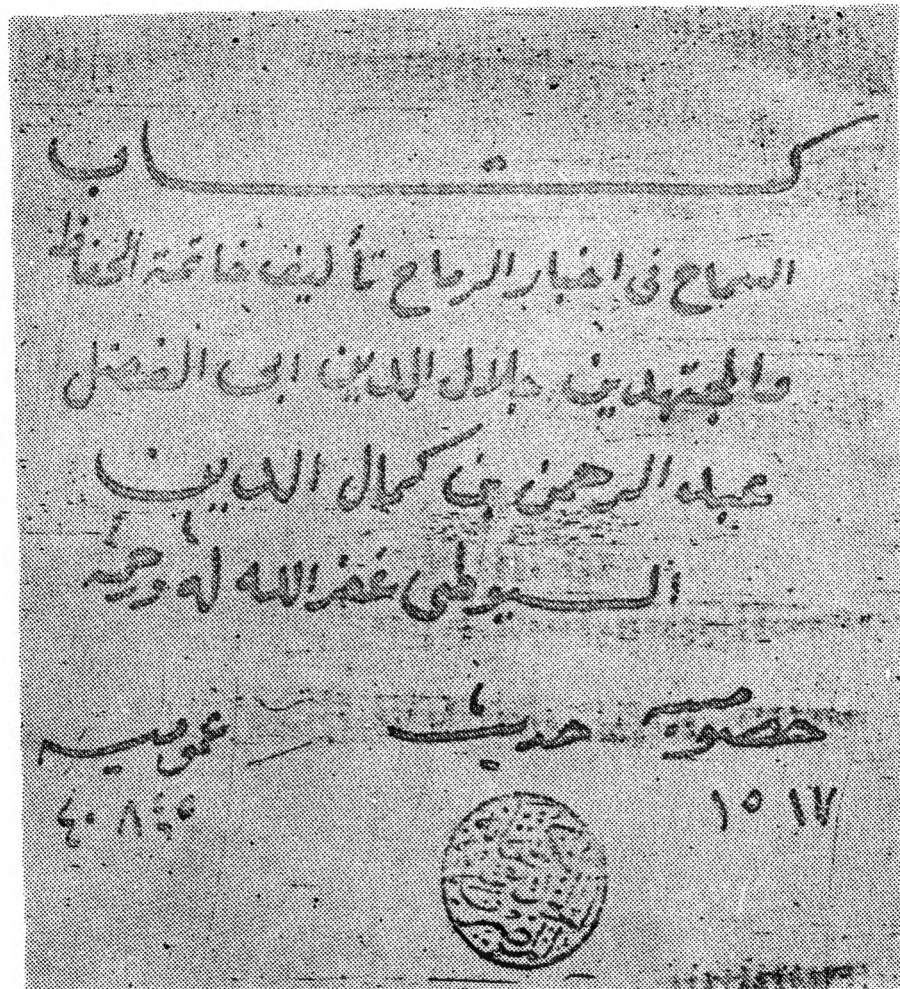 كتاب
السماح فى اخبار الرماح تأليف خاتمة الحفاظ
والمجتهدين جلال الدين ابى الفضل
عبد الرحمن بن كمال الدين
السيوطى غفر الله له ورحمه
خصوصيه حديث عموميه
١٥١٧